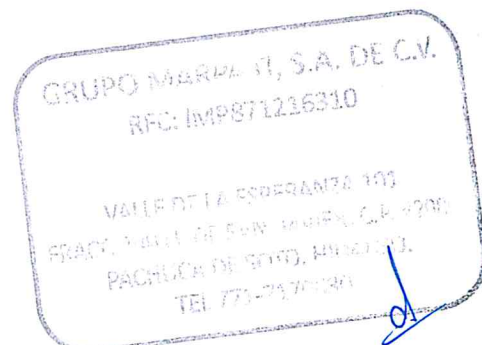 GRUPO S.A. DE C.V.
RFC: IMP871216310
VALLE DE LA ESPERANZA 103
FRACC. VALLE DE SAN JAVIER, C.P.
PACHUCA DE SOTO, HIDALGO.
TEL 771-